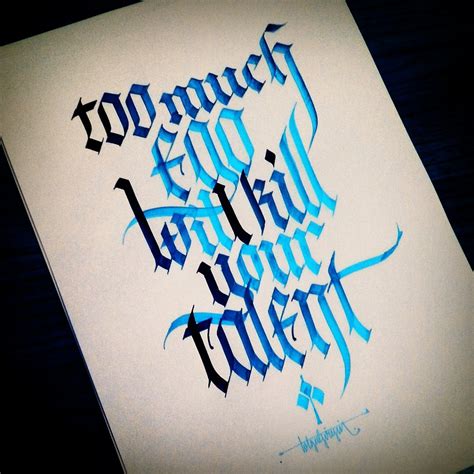 too much
Ego
will kill
your
talent